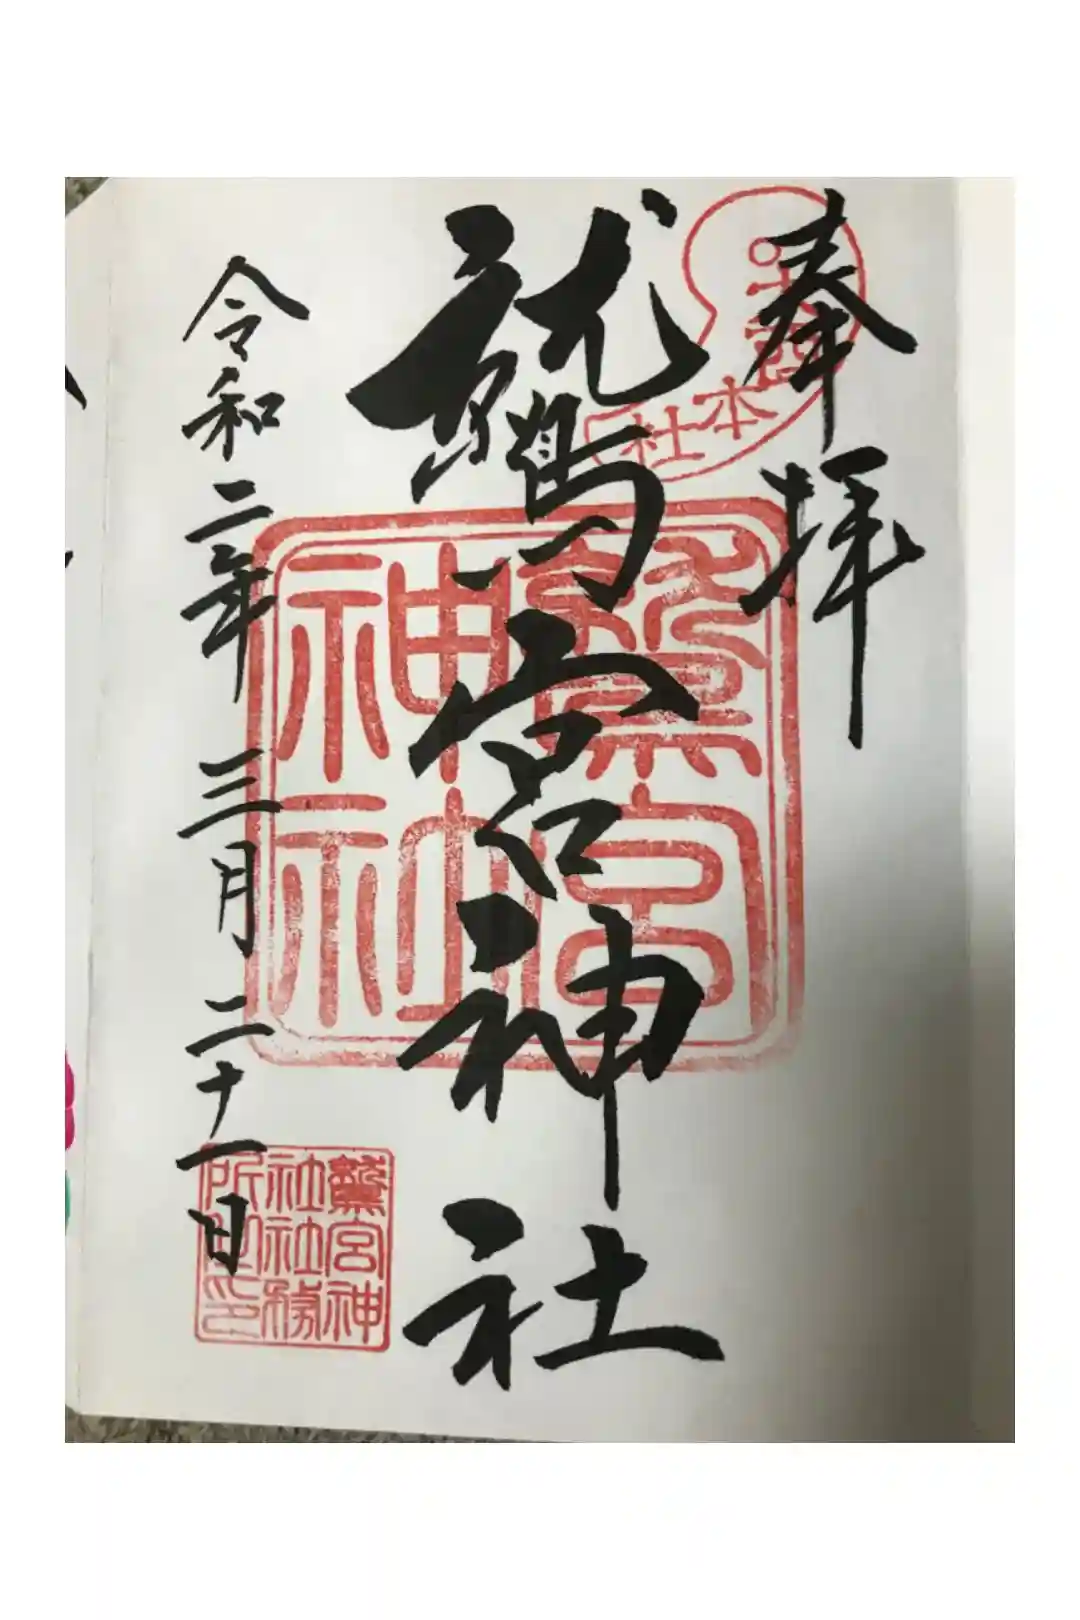 奉拝
お酉様本社
鷲宮神社
鷲宮神社
令和二年三月二十一日
鷲宮神社社務所之印